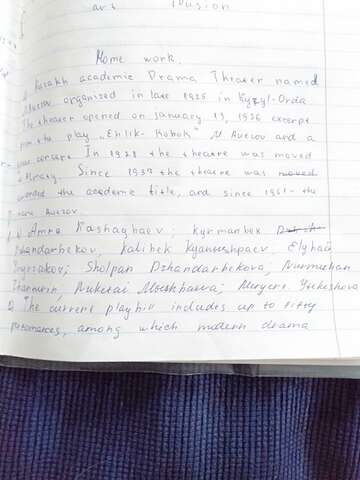 art fusion
Home work.
Kazakh academic Drama Theater named
Auezov organized in late 1925 in Kyzyl-Orda
The theater opened on January 13, 1926 excerpt
from the play "Enlik-Kebek" M Auezov and a
concert. In 1928 the theatre was moved
Almaty. Since 1937 the theatre was moved
the academic title, and since 1961 - the
name Auezov.
Amre Kashaybaev; Kyrmanbek
Dzhandarbekov, Kalibek Kyanushpaev; Elyubai
Sholpan Dzhandarbekova, Nurmuhan
Zhanturin,
2 The current playbill includes up to fifty
performances, among which modern drama